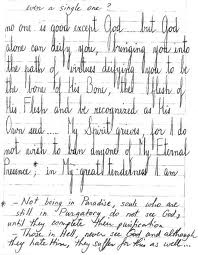 even a single one?
no one is good except God but God
alone can deify you, bringing you into
the path of virtues deifying you to be
the bone of His Bone, the flesh of
His Flesh and be recognized as His
Own seed.... My Spirit grieves for I do
not wish to ban anyone of My Eternal
Presence; * in My great tenderness I am
* - Not being in Paradise, souls who are
still in Purgatory, do not see God,
until they complete their purification
- Those in Hell, never see God and although
they hate Him, they suffer for this as well...